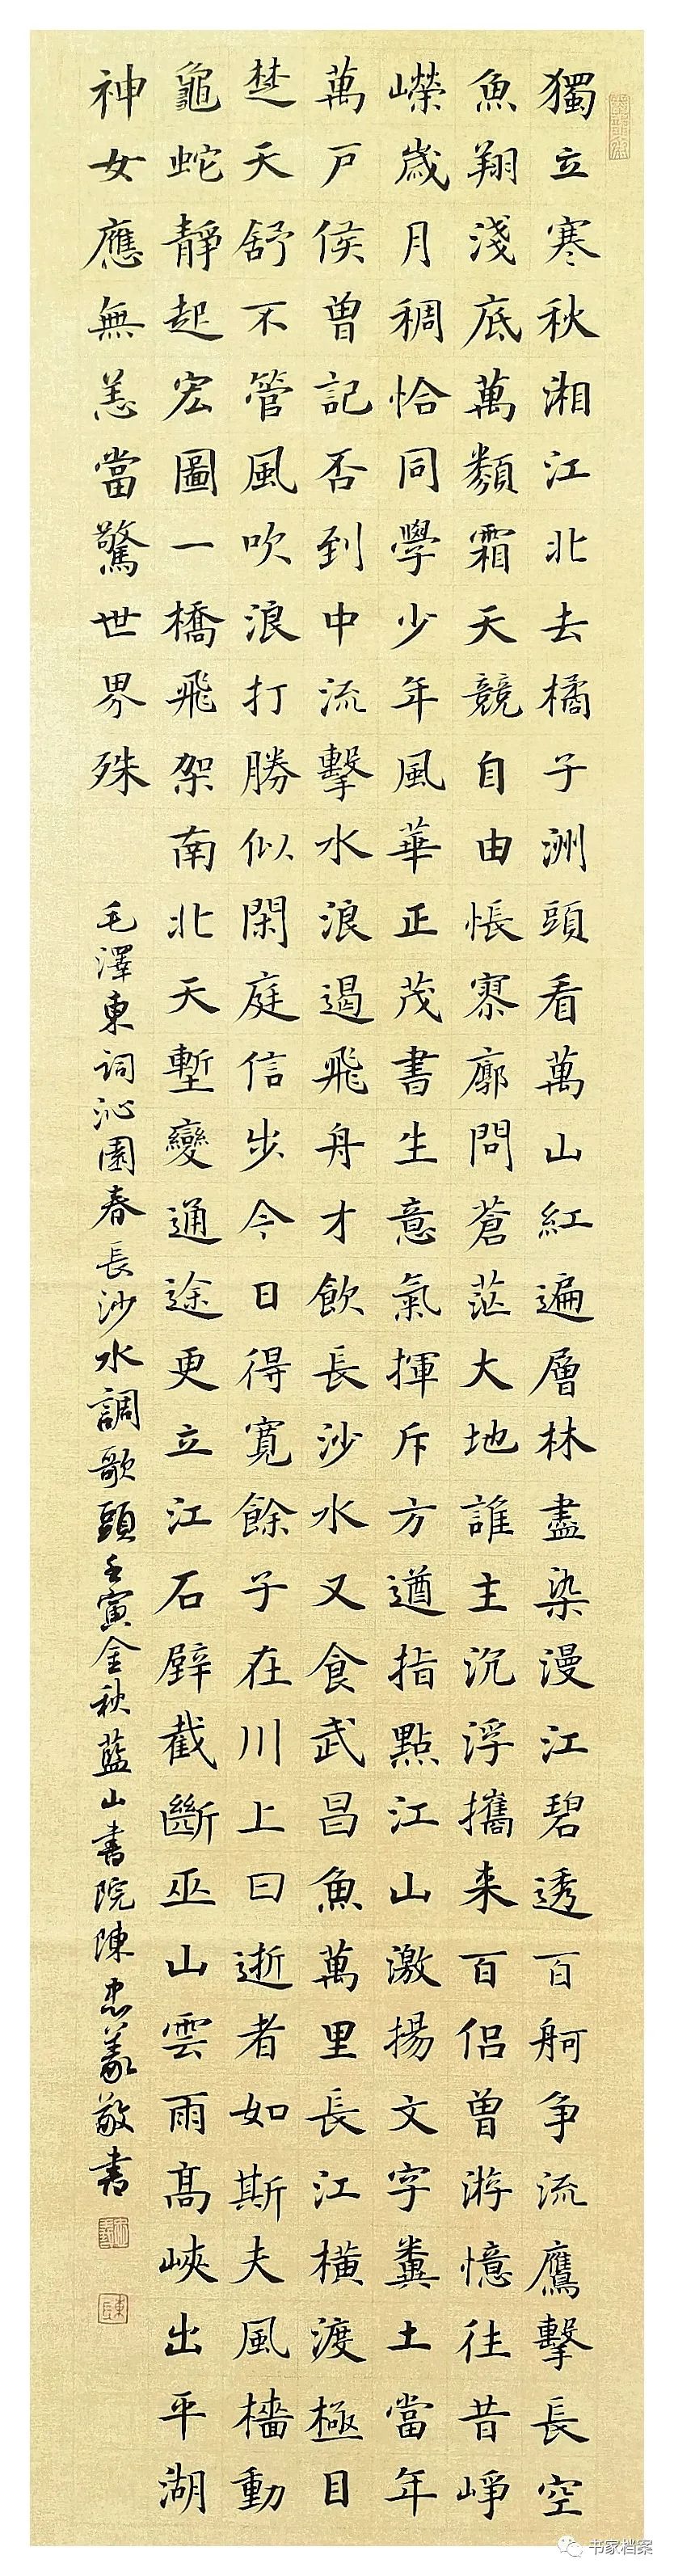 獨立寒秋湘江北去橘子洲頭看萬山紅遍層林盡染漫江碧透百舸争流鷹擊長空
魚翔淺底萬類霜天競自由悵寥廓問蒼茫大地誰主沉浮攜来百侣曾游憶往昔崢
嶸歲月稠恰同學少年風華正茂書生意氣揮斥方遒指點江山激揚文字糞土當年
萬戶侯曾記否到中流擊水浪遏飛舟才飲長沙水又食武昌魚萬里長江橫渡極目
楚天舒不管風吹浪打勝似閑庭信步今日得寬餘子在川上曰逝者如斯夫風檣動
龜蛇靜起宏圖一橋飛架南北天塹變通途更立江石壁截斷巫山雲雨髙峽出平湖
神女應無恙當驚世界殊
毛澤東詞沁園春長沙水調歌頭壬寅金秋藍山書院陳忠義敬書
书家档案